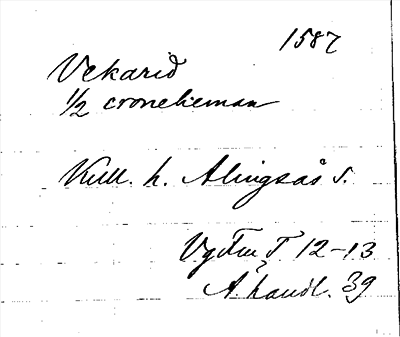 1587
Vekarid
1/2 croneheman
Kull. h. Alingsås s.
Vg Fm T 12-13
A. handl. 39